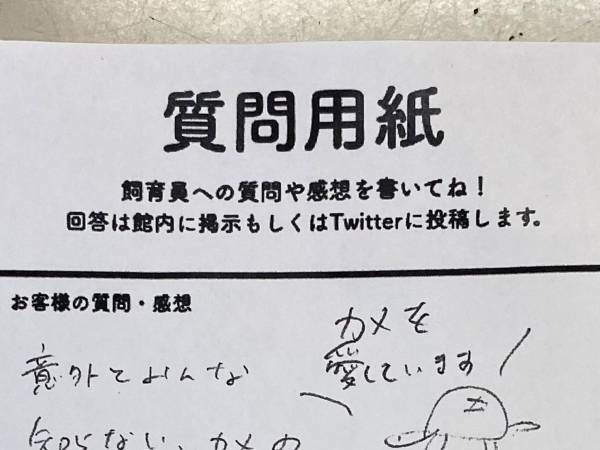 質問用紙
飼育員への質問や感想を書いてね!
回答は館内に掲示もしくはTwitterに投稿します。
お客様の質問・感想
カメを
愛しています
意外とみんな
知らない、カメの